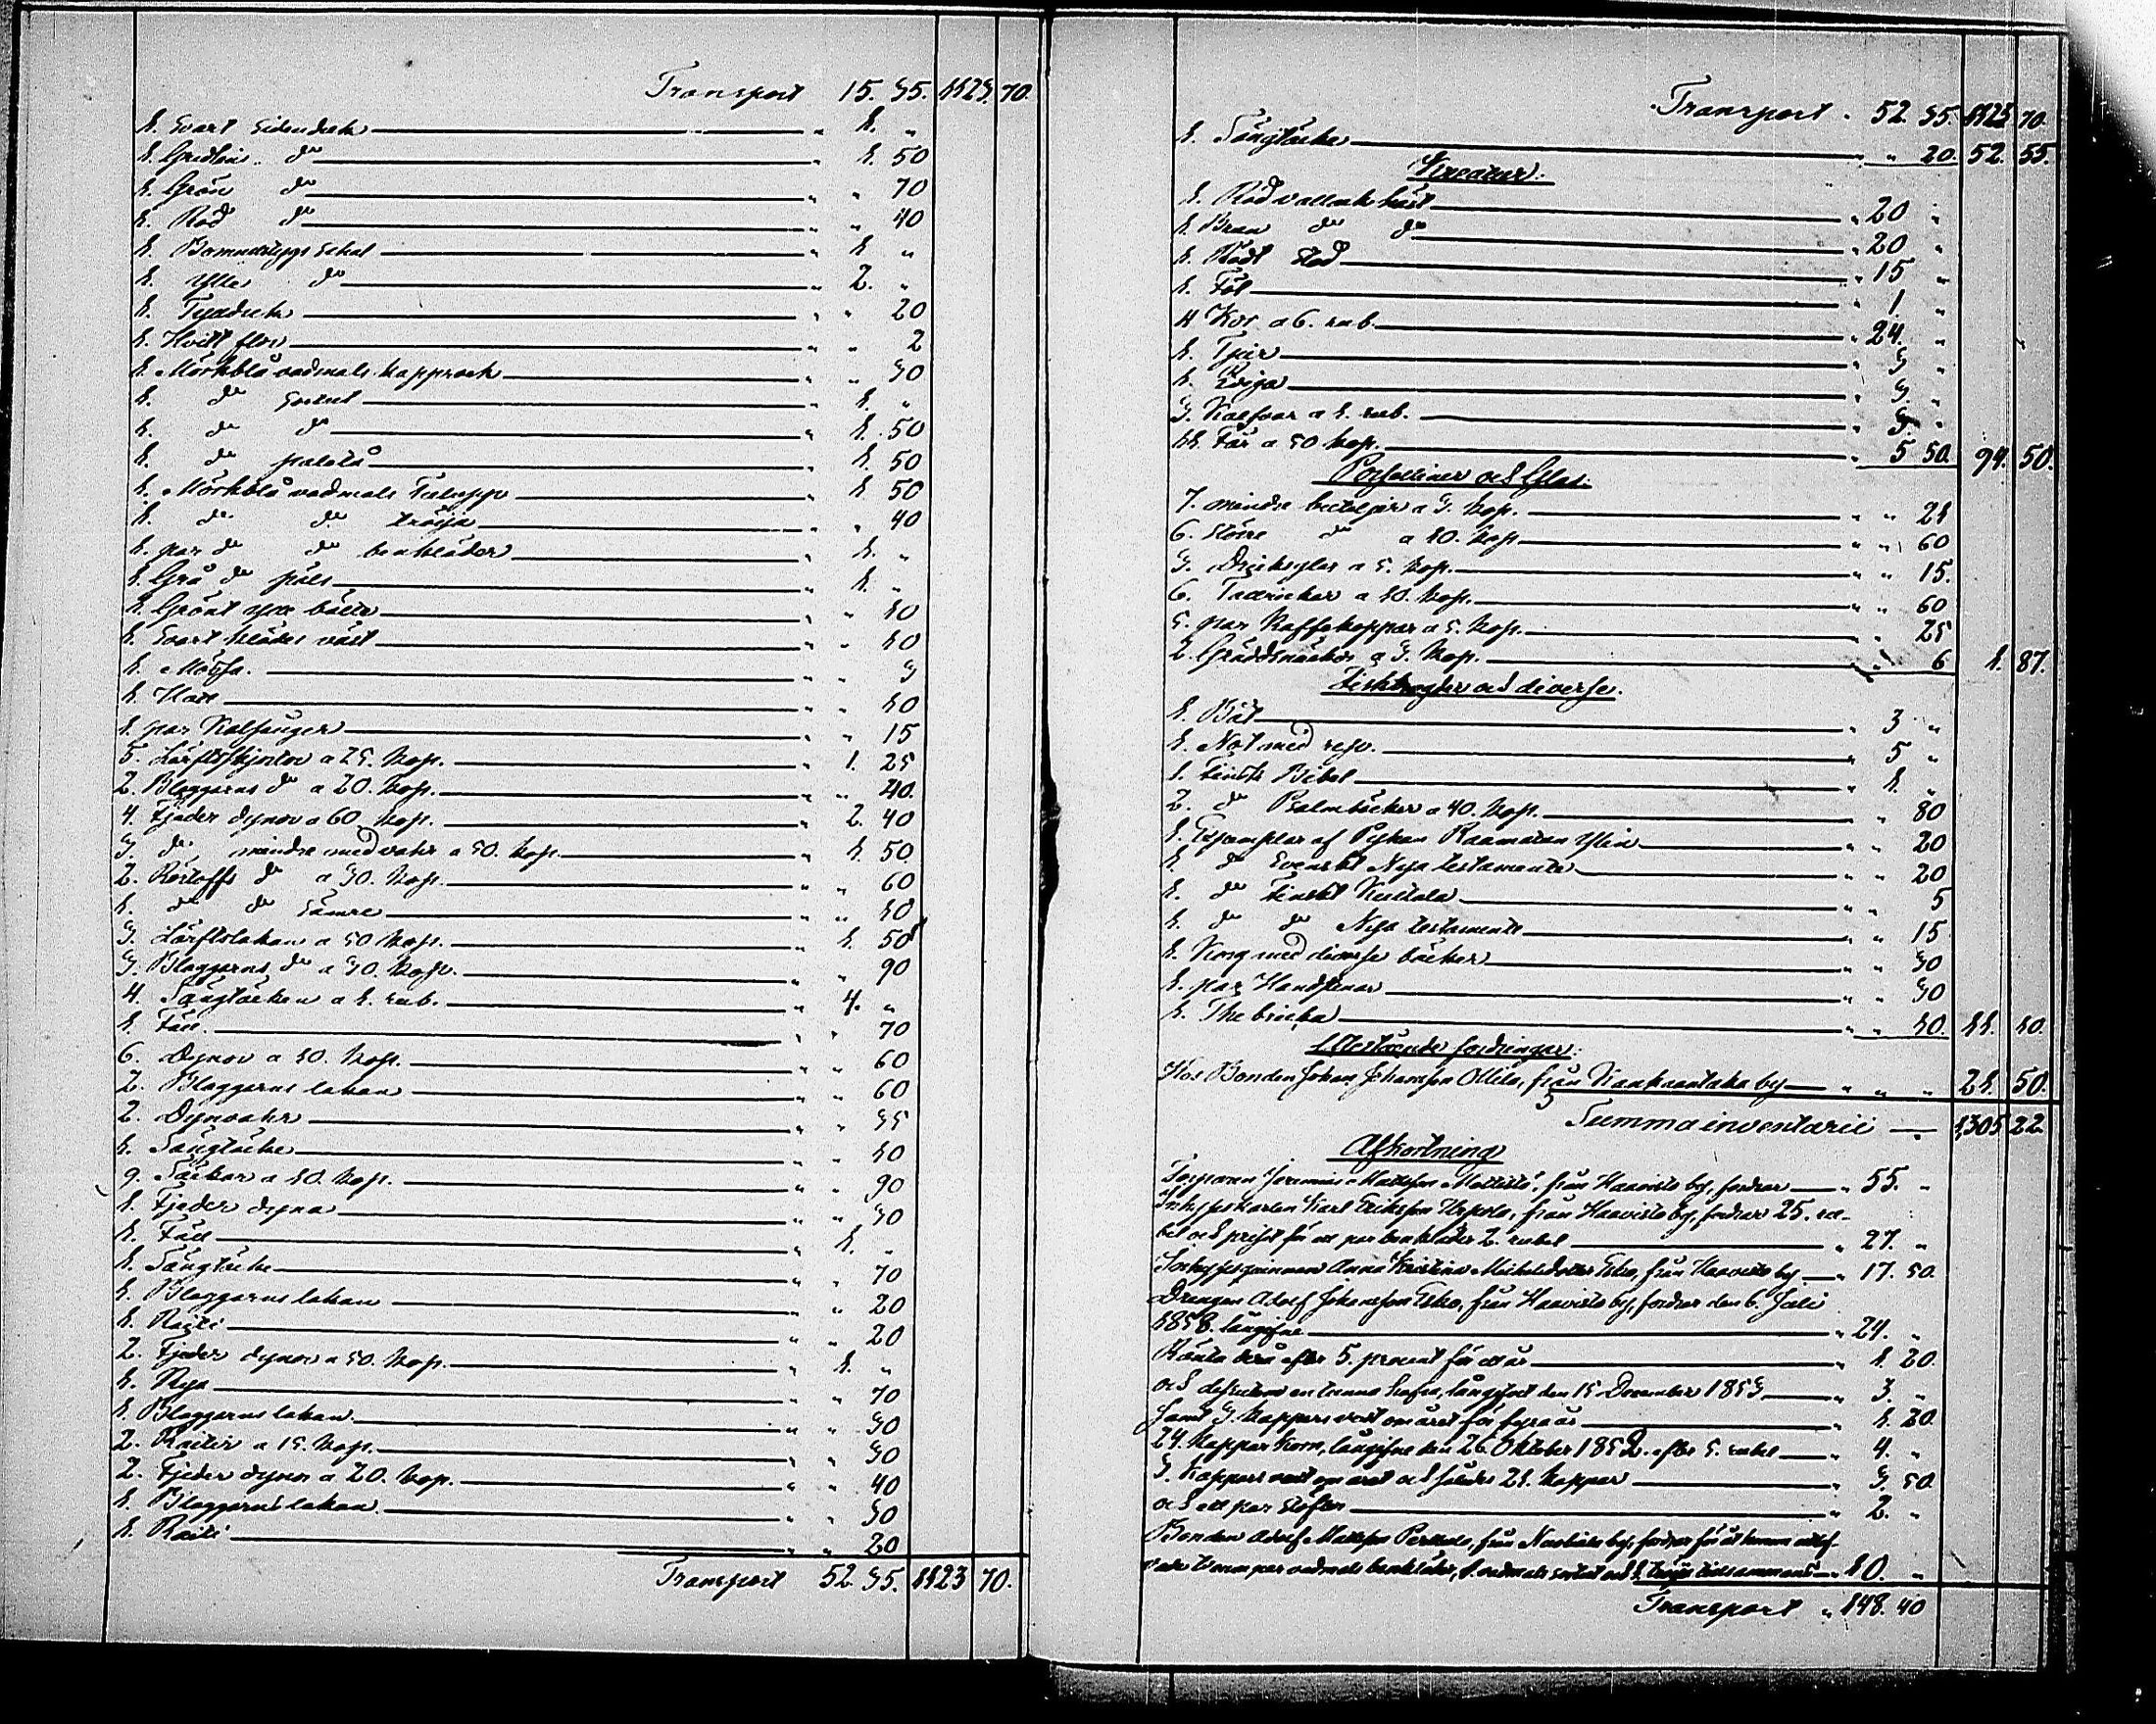 Transport 15. 35. 1123. 70.
1. Svart Sidenduk " 1. "
1. Gredlin do " 1. 50
1. Grön do " " 70
1. Röd do " " 40
1. Bomullstygs Schal " 1 "
1. Ylle do " 2. "
1. Tylladuk " " 20
1. Hvitt flor " " 2
1. Mörkblå vadmals kapprock " " 30
1. do Sortut " 1. "
1. do do " 1. 50
1. do paletå " 1. 50
1. Mörkblå vadmals Tulupp " 1 50
1. do do tröija " " 40
1. par do do benkläder " 1. "
1. Grå do päls " 1. "
1. Grönt ylle bälte " " 10
1. Svart klädes väst " " 10
1. Mössa. " " 3
1. Hatt " " 10
1. par Kalfsånger " " 15
5. Lärftsskjortor a 25. kop. " 1. 25
2. Blaggarns do a 20. kop. " " 40.
4. Fjäder dynor a 60 kop. " 2. 40
3. do mindre med vahr a 50. kop. " 1. 50
2. do a 30. kop. " " 60
1. do do Sämre " " 10
3. Lärftslakan a 50 kop. " 1. 50
3. Blaggarns do a 30. kop. " " 90
4. Sängtäcken a 1. rub. " 4. "
1. Fäll. " " 70
6. Dynor a 10. kop. " " 60
2. Blaggarns lakan " " 60
2. Dynvahr " " 35
1. Sängtäcke " " 10
9. Säckar a 10. kop. " " 90
1. Fjäder dyna " " 30
1. Fäll " 1. "
1. Sängtäcke " " 70
1. Blaggarns lakan " " 20
1. Raiti " " 20
2. Fjäder dynor a 50. kop. " 1. "
1. Rya " " 70
1. Blaggarns lakan " " 30
2. Raitir a 15. kop. " " 30
2. Fjeder dynor a 20. kop. " " 40
1. Blaggarns lakan " " 30
1. Raiti " " 20
Transport 52. 35. 1123 70.
Transport " 52. 35. 1123 70.
1. Sängtäcke " " 20. 52. 55.
Kreatur:
1. Röd vallack häst " 20 "
1. Brun do do " 20 "
1. Rödt Stod " 15 "
1. Föl " 1 "
4 Kor a 6. rub. " 24. "
1. Tjur " 3 "
1. Qviga " 3. "
3. Kalfvar a 1. rub. " 3. "
11. Får a 50 kop. " 5 50. 94. 50.
Porsliner och Glas.
7. mindre buteljer a 3. kop. " " 21
6. större do a 10. kop " " 60
3. Dricksglas a 5. kop. " " 15.
6. Tallrickar a 10. kop. " " 60
5. par Kaffekoppar a 5. kop. " " 25
2. Gräddsnäckor a 3. kop. " " 6 1. 87.
Fiskbragder och diverse.
1. Båt " 3 "
1. Not med rep. " 5 "
1. Finsk Bibel " 1. "
2. do Psalmböcker a 40. kop. " " 80
1. Exemplar af Pyhan Raamatun Ylin " " 20
1. do Svenskt Nya testamente " " 20
1. do Finskt " " 5
1. do do Nya testamente " " 15
1. Korg med diverse böcker " " 30
1. par Handskar " " 30
1. The bricka " " 10. 11. 10.
Utestående fordringar:
Hos Bonden Johan Johansson Ollila, från Kankaantaka by " " " 21. 50.
Summa inventarii " 1,305 22.
Afkortning
Torparen Jeremias Mattsson Mattista, från Haavisto by, fordrar " 55. "
Inhyseskarlen Karl Eriksson, från Haavisto by, fordrar 25. ru-
bel och priset för ett par benkläder 2. rubel " 27. "
Inhyseqvinnan Anna Kristina Michelsdotter Esko, från Haavisto by " 17. 50.
Drängen Adolf Johansson Esko, från Haavisto by, fordrar den 6. Juli
1858. långifne " 24. "
Ränta derå efter 5. procent för ett år " 1. 20.
och dessutom en tunna hafra, långifvet den 15 December 1853 " 3. "
samt 3. kappars vext om året för fyra år " 1. 20.
24. Kappar korn, långifne den 26. Oktober 1852. efter 5. rubel " 4. "
3. Kappars vext om året och således 21. kappar " 3. 50.
och ett par stöflor " 2. "
Bonden Adolf Mattsson Perttula, från by, fordrar för åt
par vadmals benkläder, 1. vadmals sortut och 1. tröija tillsammans " 10. "
Transport " 148. 40